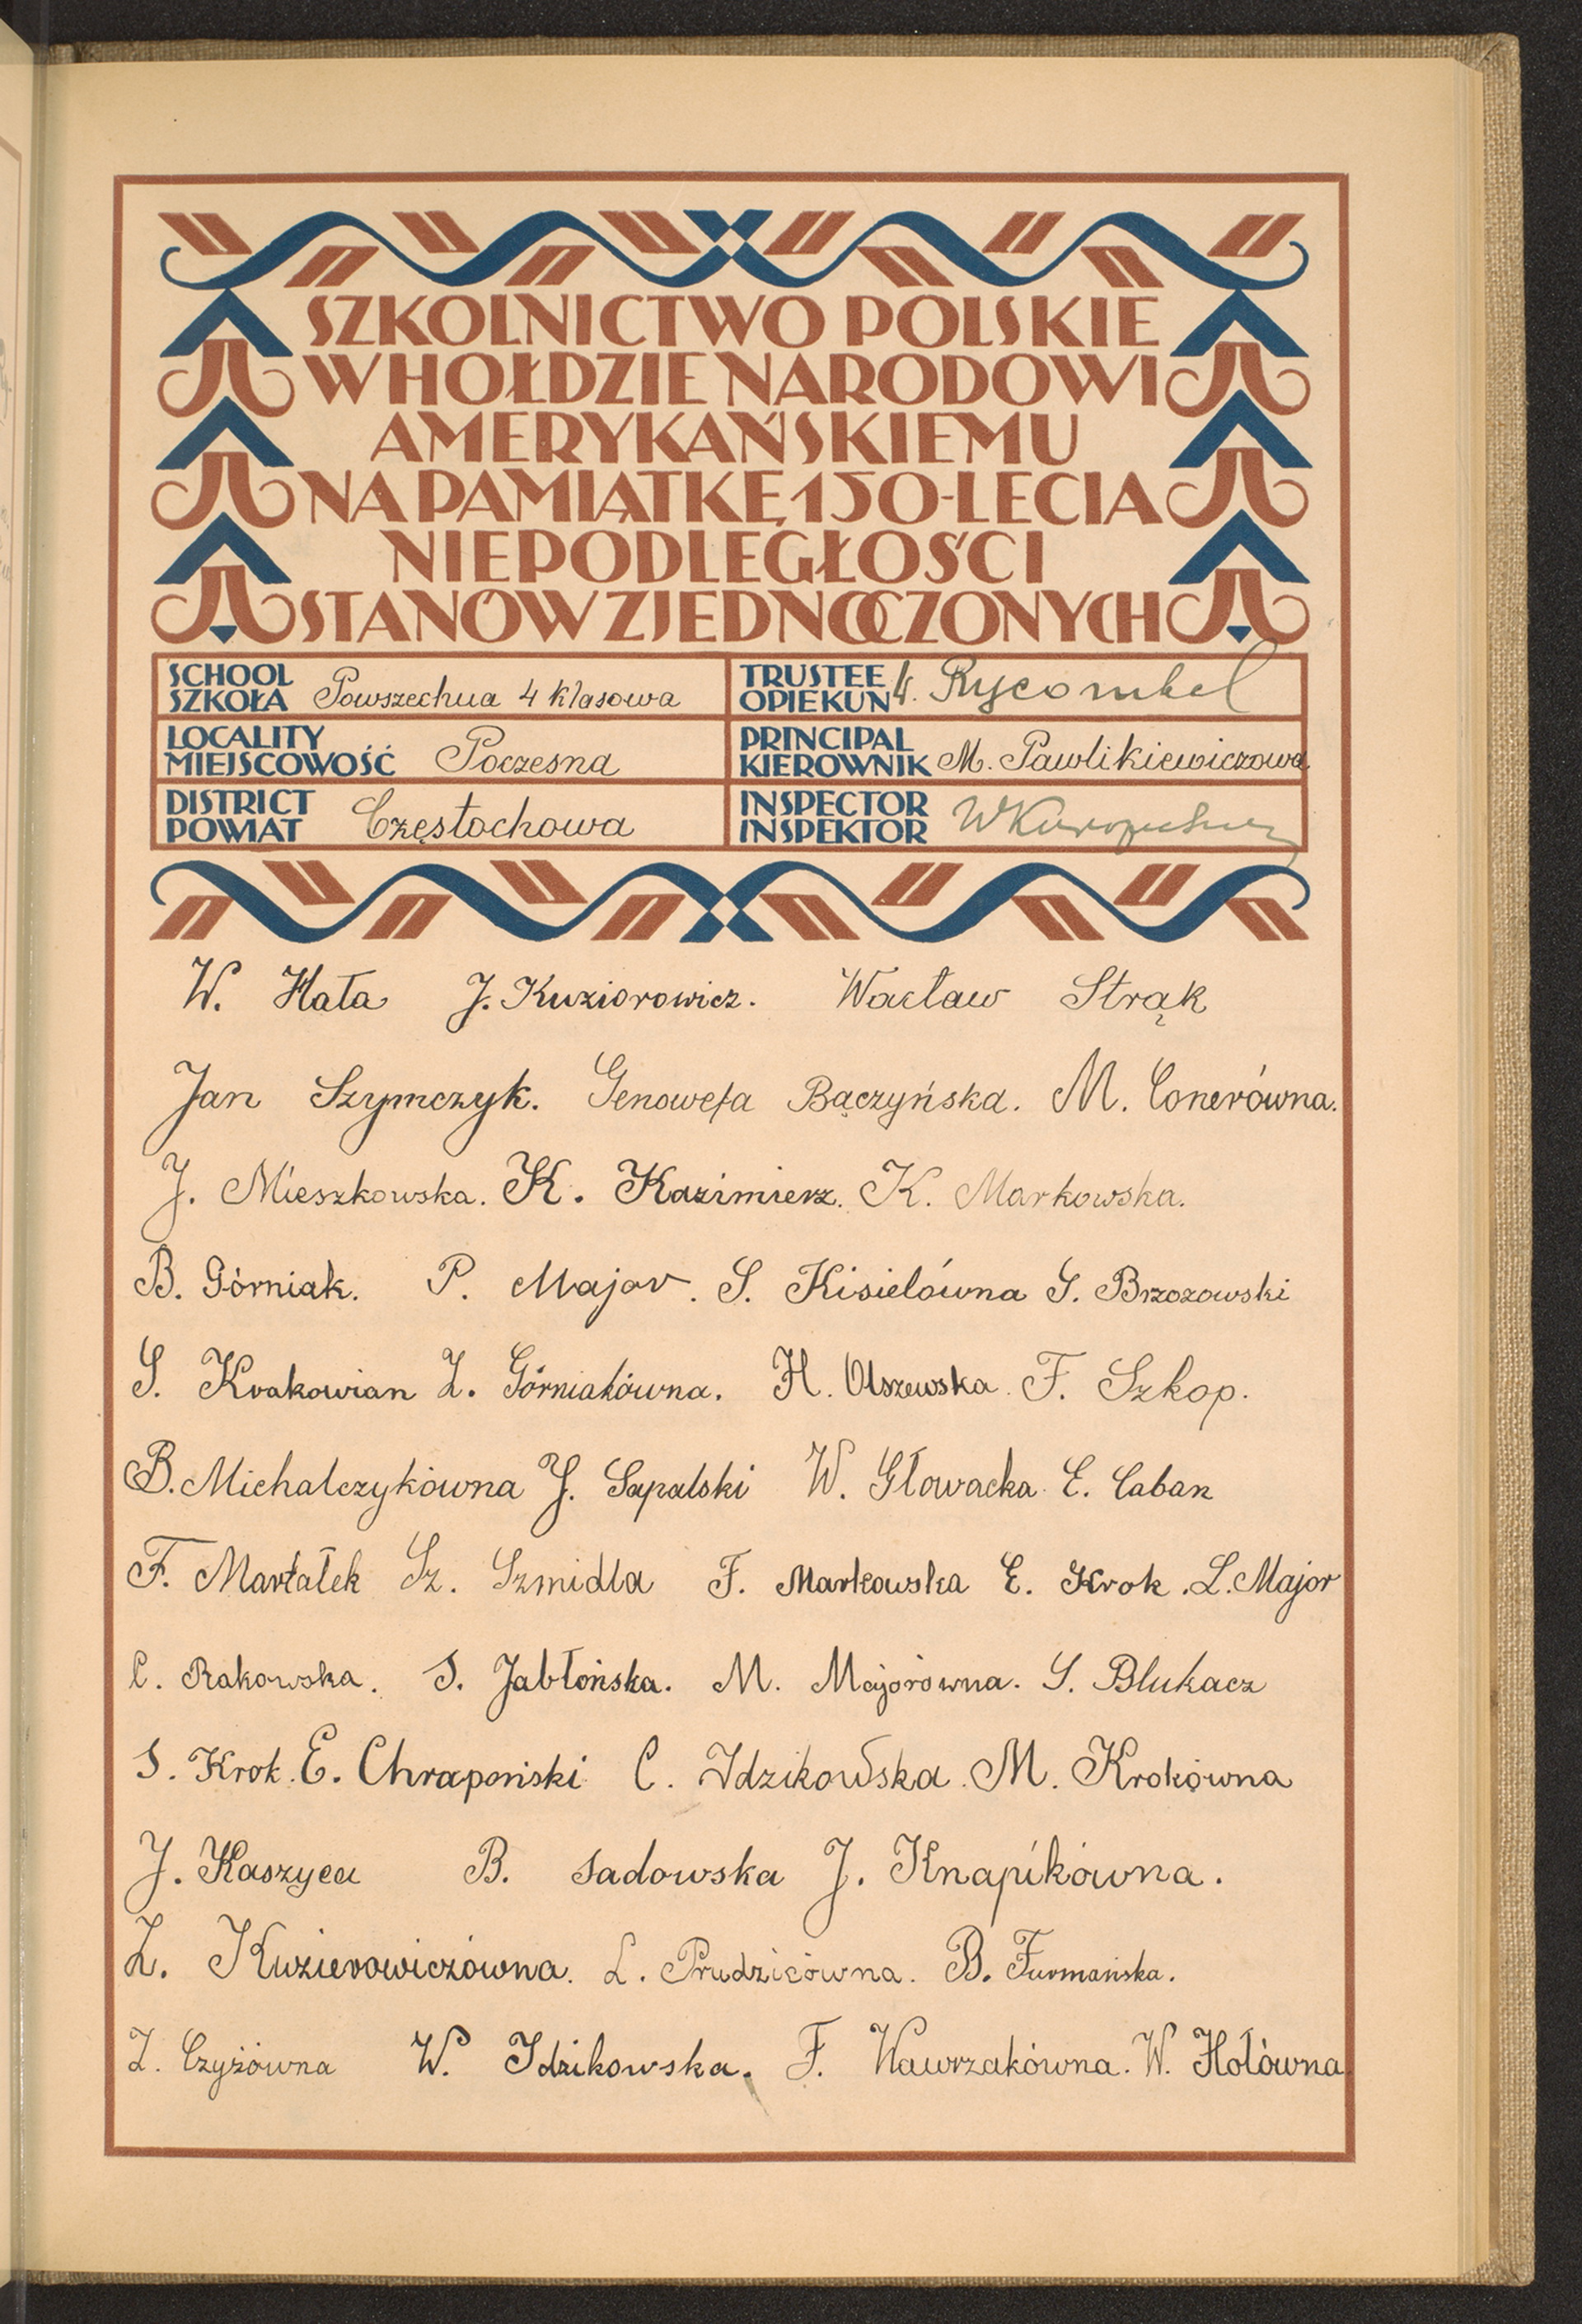 SZKOLNICTWO POLSKIE
W HOŁDZIE NARODOWI
AMERYKAŃSKIEMU
NA PAMIĄTKĘ 150-LECIA
NIEPODLEGŁOŚCI
STANÓW ZJEDNOCZONYCH
SCHOOL
SZKOŁA Powszechna 4 klasowa
TRUSTEE
OPIEKUN Rycombel
LOCALITY
MIEJSCOWOŚĆ Poczesna
PRINCIPAL
KIEROWNIK M. Pawlikiewiczowa
DISTRICT
POWIAT Częstochowa
INSPECTOR
INSPEKTOR
W. Hała J. Kuziorowicz. Wacław Strąk
Jan Szymczyk. Genowefa Bączyńska. M. Conerówna.
J. Mieszkowska. K. Kazimierz. K. Markowska.
B. Górniak. P. Major. S. Kisielówna S. Brzozowski
S. Krakowian Z. Górniakówna. H. Olszewska. F. Szkop.
B. Michalczykówna J. Sapalski W. Głowacka. E. Caban
F. Martałek Sz. Szmidla F. Markowska E. Krok. L. Major
C. Rakowska. S. Jabłońska. M. Majorówna. S. Blukacz
S. Krok. E. Chrapoński C. Idzikowska. M. Krokówna
J. Kaszyca B. Sadowska J. Knapikówna.
Z. Kuzierowiczówna. L. Prudzicówna. B. Furmańska.
Z. Czyżówna W. Idzikowska. F. Wawrzakówna. W. Hołówna